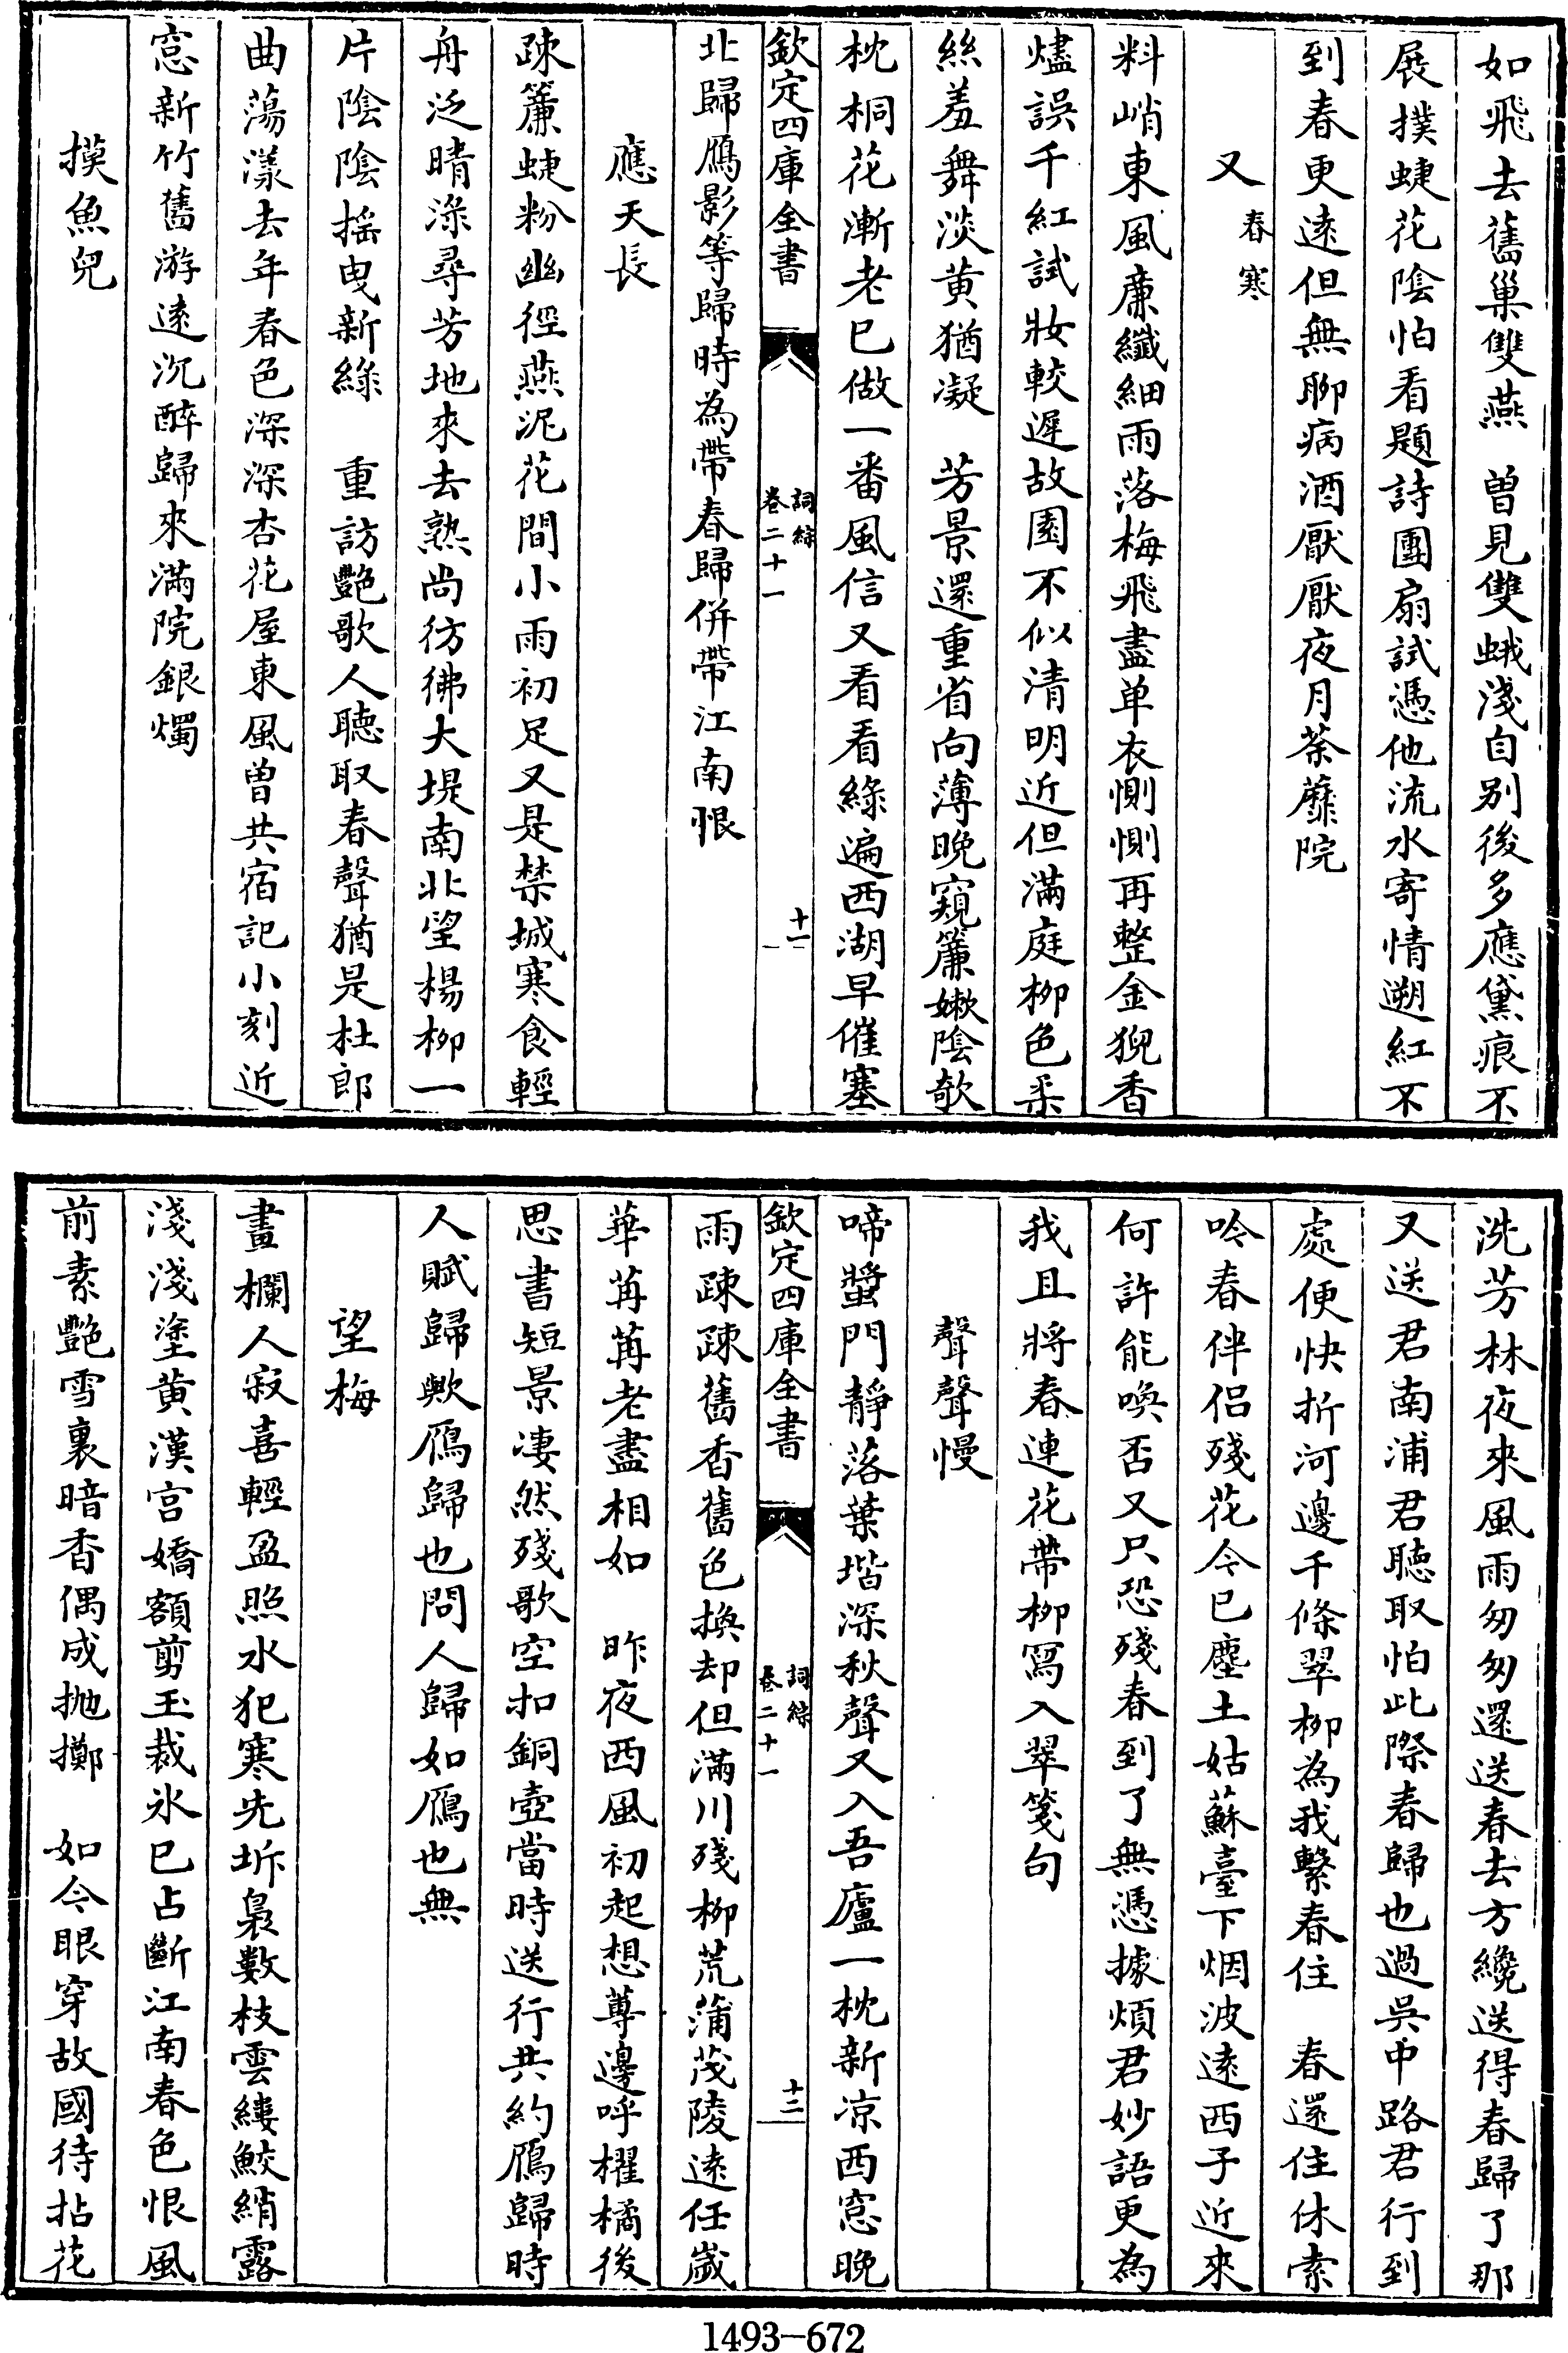 如飛去舊巢雙燕　曽見雙蛾淺自别後多應黛痕不
展撲蜨花陰怕看題詩團扇試憑他流水寄情遡紅不
到春更逺但無聊病酒厭厭夜月荼蘼院
又春寒
料峭東風亷纖細雨落梅飛盡单衣惻惻再整金猊香
燼誤千紅試妝較遲故園不似清明近但滿庭栁色柔
絲羞舞淡黄猶凝　芳景還重省向薄晚窺簾嫩隂欹
枕桐花漸老巳做一番風信又看看綠遍西湖早催塞
欽定四庫全書
詞綜
卷二十一
十一
北歸鴈影等歸時為帶春歸併帶江南恨
應天長
疎簾蜨粉幽徑燕泥花間小雨初足又是禁城寒食輕
舟泛晴渌尋芳地來去熟尚彷彿大堤南北望楊栁一
片隂隂揺曳新綠　重訪艷歌人聽取春聲猶是杜郎
曲蕩漾去年春色深深杏花屋東風曽共宿記小刻近
窓新竹舊游逺沉醉歸來滿院銀燭
摸魚兒
洗芳林夜來風雨匆匆還送春去方纔送得春歸了那
又送君南浦君聽取怕此際春歸也過吳中路君行到
處便快折河邊千條翠栁為我繫春住　春還住休索
吟春伴侣殘花今已塵土姑蘇臺下烟波逺西子近來
何許能喚否又只恐殘春到了無憑據煩君妙語更為
我且將春連花帶栁寫入翠箋句
聲聲慢
啼螿門靜落葉堦深秋聲又入吾廬一枕新凉西窓晚
欽定四庫全書
詞綜
卷二十一
十二
雨疎疎舊香舊色換却但滿川殘栁荒蒲茂陵逺任嵗
華苒苒老盡相如　昨夜西風初起想蓴邊呼櫂橘後
思書短景凄然殘歌空扣銅壺當時送行共約鴈歸時
人賦歸歟鴈歸也問人歸如鴈也無
望梅
畫欄人寂喜輕盈照水犯寒先坼裊數枝雲縷鮫綃露
淺淺塗黄漢宫嬌額剪玉裁氷已占斷江南春色恨風
前素艷雪裏暗香偶成抛擲　如今眼穿故國待拈花
1493-672